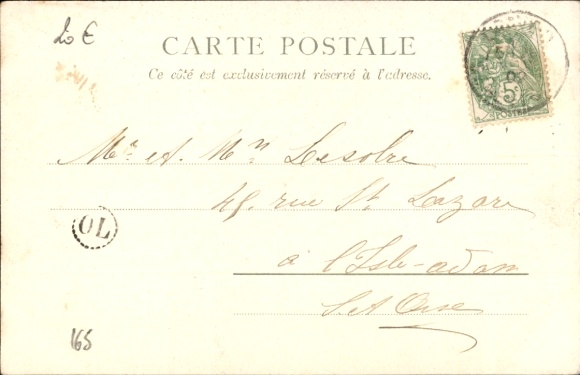 20 €
CARTE POSTALE
Ce côté est exclusivement réservé à l'adresse.
5
POSTES
Mr et Mme Lesobre
48, rue St Lazare
OL
à l'Isle-adam
S. et Oise
165